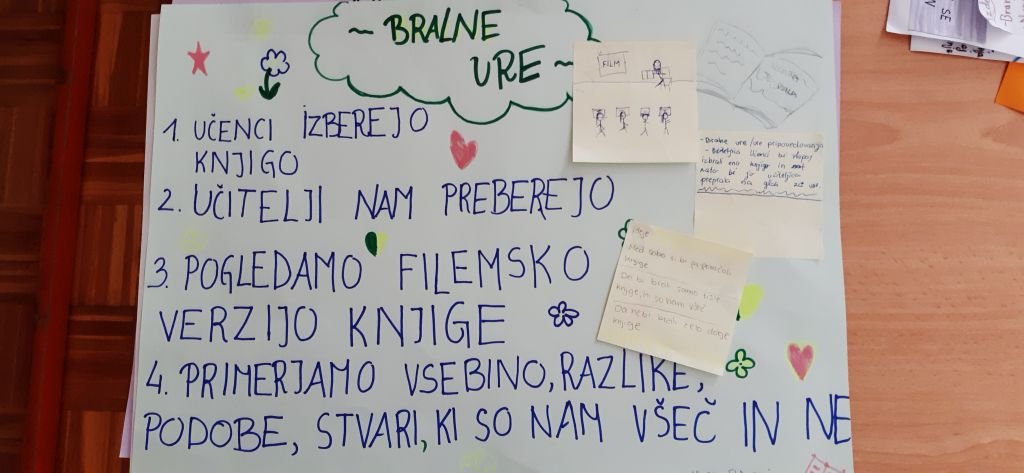 ~ BRALNE
URE ~
1. UČENCI IZBEREJO
KNJIGO
2. UČITELJI NAM PREBEREJO
3. POGLEDAMO FILEMSKO
VERZIJO KNJIGE
4. PRIMERJAMO VSEBINO, RAZLIKE,
PODOBE, STVARI, KI SO NAM VŠEČ IN NE
FILM
- Bralne ure/ure pripovedovanja
učenci bi
izbrali eno knjigo in
nato bi jo učiteljica
prebrala na glas
Ideje
Med sabo si bi priporočali
knjige
Da bi brali samo tiste
knjige, ki so nam všeč
Da nebi brali zelo dolge
knjige
SE